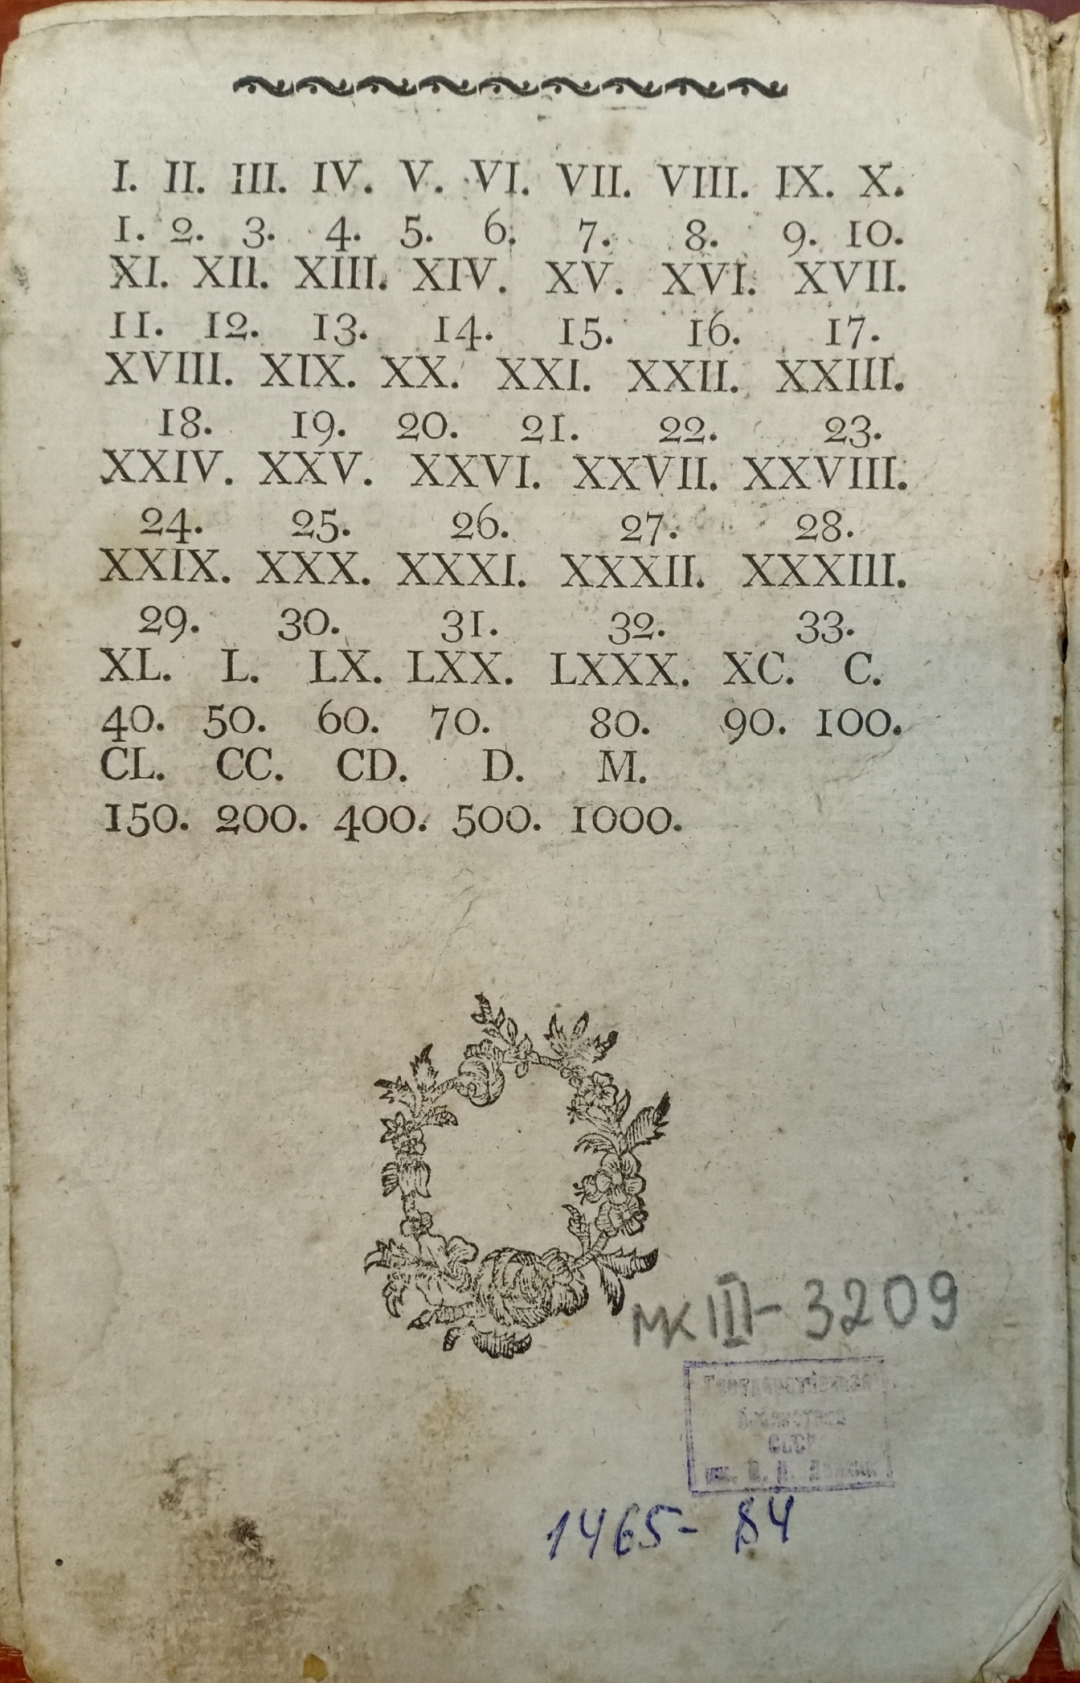 I. II. III. IV. V. VI. VII. VIII. IX. X.
1. 2. 3. 4. 5. 6. 7. 8. 9. 10.
XI. XII. XIII. XIV. XV. XVI. XVII.
11. 12. 13. 14. 15. 16. 17.
XVIII. XIX. XX. XXI. XXII. XXIII.
18. 19. 20. 21. 22. 23.
XXIV. XXV. XXVI. XXVII. XXVIII.
24. 25. 26. 27. 28.
XXIX. XXX. XXXI. XXXII. XXXIII.
29. 30. 31. 32. 33.
XL. L. LX. LXX. LXXX. XC. C.
40. 50. 60. 70. 80. 90. 100.
CL. CC. CD. D. M.
150. 200. 400. 500. 1000.
МК III-3209
Государственная
библиотека
СССР
им. В. И. Ленина
1465-84